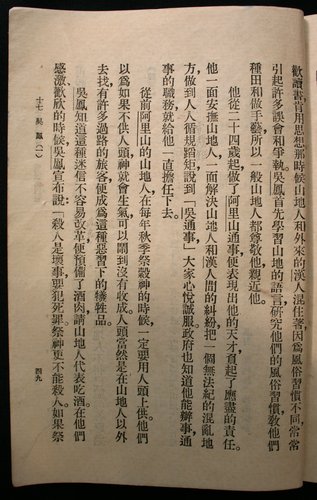 歡讀書，肯用思想。那時候山地人和外來的漢人混住著，因爲風俗習慣不同，常常
引起許多誤會和爭執。吳鳳首先學習山地的語言，研究他們的風俗習慣，敎他們
種田和做手藝，所以一般山地人都尊敬他，親近他。
他從二十四歲起，做了阿里山通事，便表現出他的天才，負起了應盡的責任。
他一面安撫山地人，一面解決山地人和漢人間的糾紛，把一個無法紀的混亂地
方，做到人人循規蹈矩，說到「吳通事」，大家心悅誠服。政府也知道他能辦事，通
事的職務，就給他一直擔任下去。
從前阿里山的山地人，在每年秋季祭穀神的時候，一定要用人頭上供。他們
以爲如果不供人頭，神就會生氣，可以鬧到沒有收成。人頭當然是在山地人以外
去找，有許多過路的旅客，便成爲這種惡習下的犧牲品。
吳鳳知道這種迷信不容易改革，便預備了酒肉，請山地人代表吃酒。在他們
感激歡欣的時候，吳鳳宣布說：「殺人是壞事，要犯死罪。祭神更不能殺人，如果祭
十七 吳鳳(一)
四九